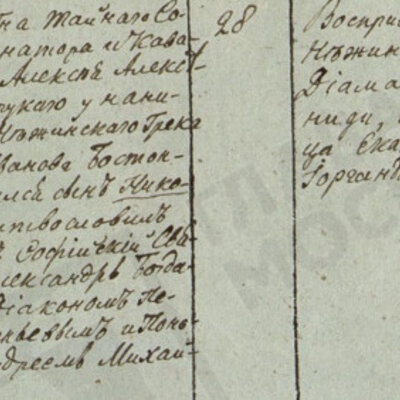 на Тайнаго Со-
натора и Кава-
Алексѣя Алексѣ-
чукаго у нани-
Нѣжинскаго Грека
ванова Бостон-
ился сынъ Нико-
итвословилъ
Софійскій Свя-
лександръ Богда-
діакономъ Пе-
ньевымъ и Поно-
ндреемъ Михай-
28
Воспри
Нѣжин
Діама
ниди,
ца Ека
Іорган